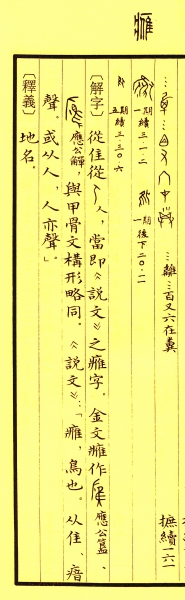 𤸰
摭續一六一
…離…百又六在糞
一期 續三·一·二 一期 後下二〇·一一
五期 續三·三〇·六
〔解字〕從隹從人，當即《說文》之𤸰字．金文𤸰作應公簋、
應公觶，與甲骨文構形略同．《說文》：「𤸰，鳥也．从隹、瘖
聲．或从人，人亦聲」．
〔釋義〕地名．